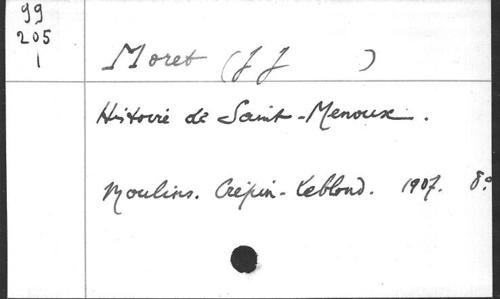 99
205
1
Moret (J J )
Histoire de Saint-Menoux.
Moulins. Crépin-Leblond. 1907. 8º